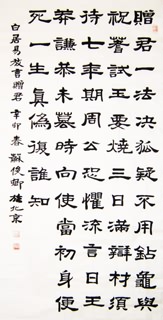 贈君一法決狐疑不用鉆龜與
祝蓍試玉要燒三日滿辯材須
待七年期周公恐懼流言日王
莽謙恭未篡時向使當初身便
死一生真偽復誰知
白居易放言贈君 辛卯春 蘇俊卿 北京